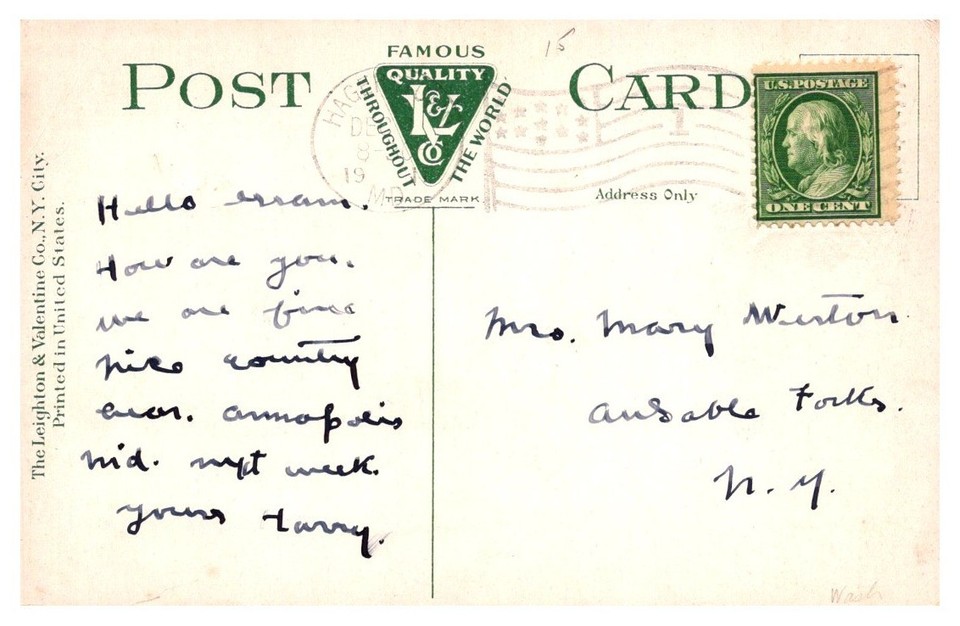 POST CARD
FAMOUS
QUALITY
THROUGHOUT THE WORLD
L&V
Co
TRADE MARK
15
HAG
DE
8-
19
MD.
1
U.S. POSTAGE
ONE CENT
Address Only
The Leighton & Valentine Co., N.Y. City.
Printed in United States.
Hello
How are you.
we are fine
nice country
annapolis
Md. next week.
yours Harry.
Mrs. Mary Weston
AuSable Forks.
N. Y.
Wash